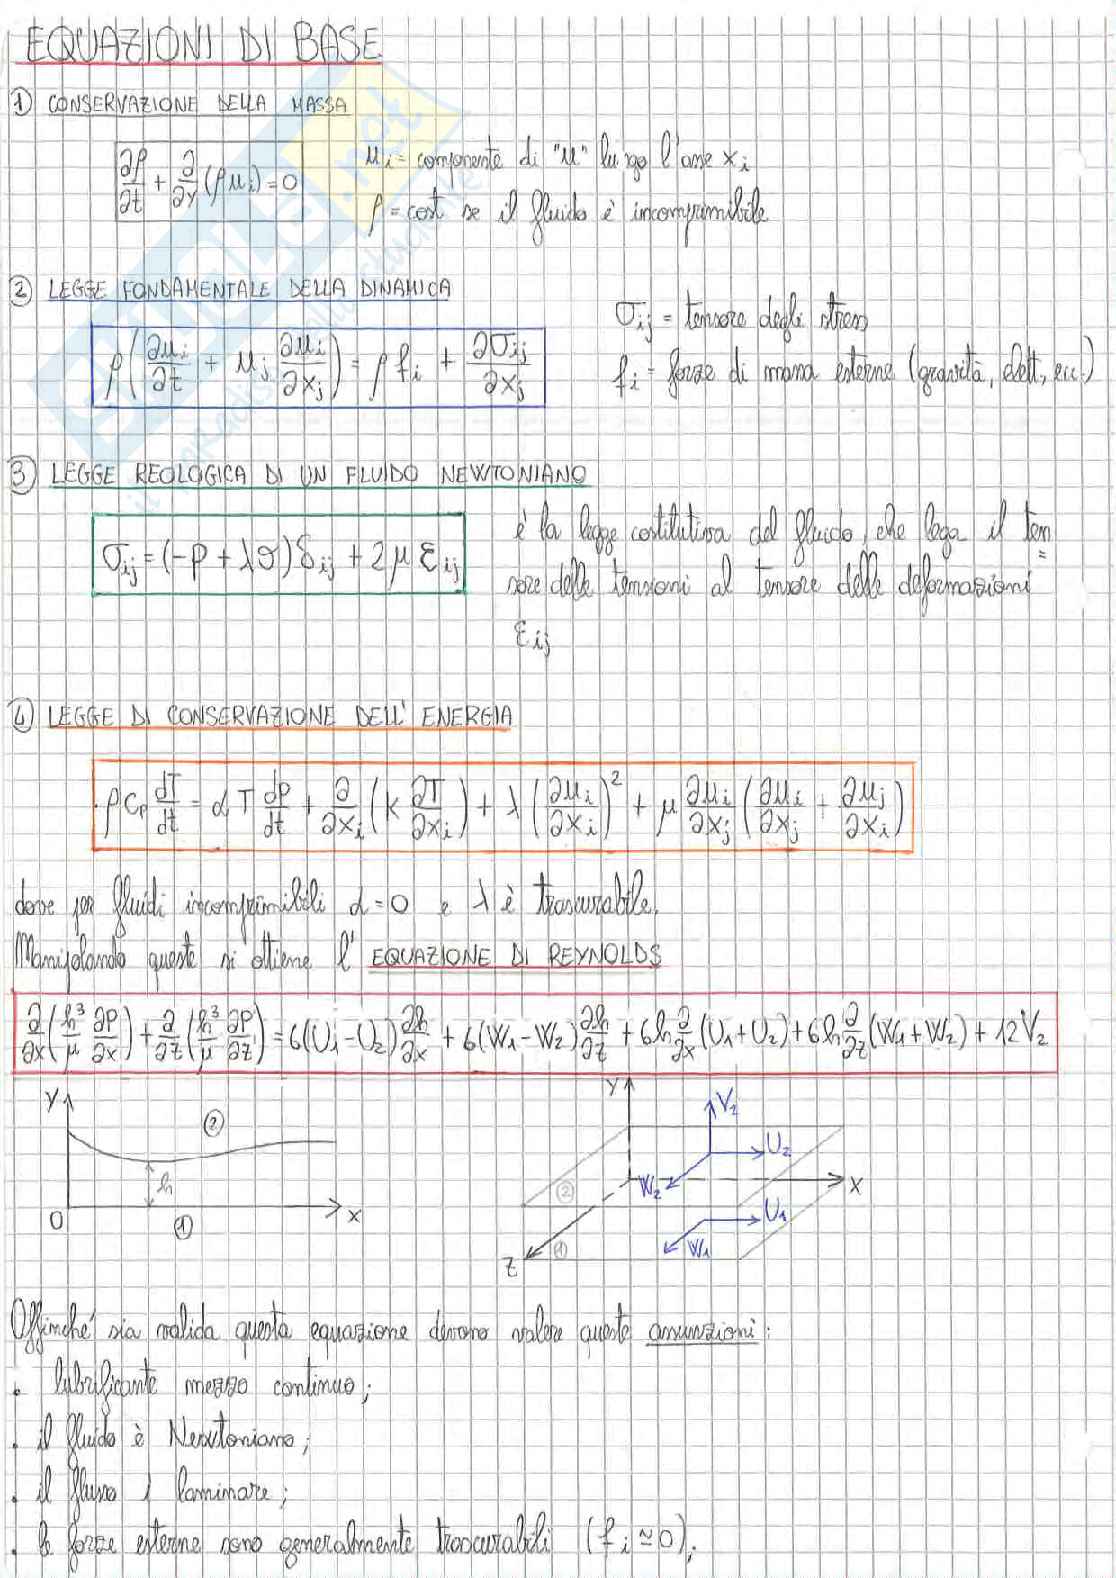 EQUAZIONI DI BASE
① CONSERVAZIONE DELLA MASSA
∂ρ/∂t + ∂/∂y (ρ u_i) = 0
u_i = componente di "u" lungo l'asse x_i
ρ = cost se il fluido è incomprimibile
② LEGGE FONDAMENTALE DELLA DINAMICA
ρ(∂u_i/∂t + u_j ∂u_i/∂x_j) = ρ f_i + ∂σ_ij/∂x_j
σ_ij = tensore degli stress
f_i = forze di massa esterne (gravità, elett., ecc.)
③ LEGGE REOLOGICA DI UN FLUIDO NEWTONIANO
σ_ij = (-p + λϑ) δ_ij + 2μ ε_ij
è la legge costitutiva del fluido, che lega il ten=
sore delle tensioni al tensore delle deformazioni
ε_ij
④ LEGGE DI CONSERVAZIONE DELL' ENERGIA
ρ c_p dT/dt = α T dp/dt + ∂/∂x_i (k ∂T/∂x_i) + λ (∂u_i/∂x_i)² + μ ∂u_i/∂x_j (∂u_i/∂x_j + ∂u_j/∂x_i)
dove per fluidi incomprimibili α = 0 e λ è trascurabile.
Manipolando queste si ottiene l' EQUAZIONE DI REYNOLDS
∂/∂x (h³/μ ∂p/∂x) + ∂/∂z (h³/μ ∂p/∂z) = 6(U₁-U₂) ∂h/∂x + 6(W₁-W₂) ∂h/∂z + 6h ∂/∂x (U₁+U₂) + 6h ∂/∂z (W₁+W₂) + 12V₂
Y
②
h
O
①
x
Y
V₂
U₂
W₂
②
x
U₁
W₁
①
Z
Affinché sia valida questa equazione devono valere queste assunzioni:
. lubrificante mezzo continuo;
. il fluido è Newtoniano;
. il flusso è laminare;
. le forze esterne sono generalmente trascurabili (f_i ≃ 0);